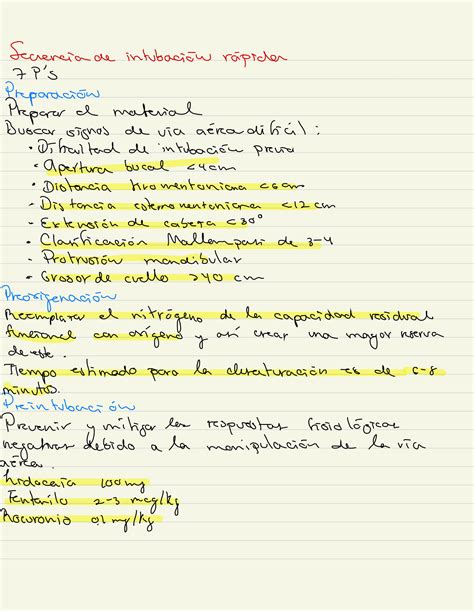 Secuencia de intubación rápida
7 P's
Preparación
Preparar el material
Buscar signos de vía aérea difícil :
• Dificultad de intubación previa
• Apertura bucal <4cm
• Distancia tiromentoniana <6cm
• Distancia esternomentoniana <12cm
• Extensión de cabeza <30°
• Clasificación Mallampati de 3-4
• Protrusión mandibular
• Grosor de cuello >40 cm
Preoxigenación
Reemplazar el nitrógeno de la capacidad residual
funcional con oxígeno y así crear una mayor reserva
de este.
Tiempo estimado para la desaturación es de 6-8
minutos.
Preintubación
Prevenir y mitigar las respuestas fisiológicas
negativas debido a la manipulación de la vía
aérea.
Lidocaína 100mg
Fentanilo 2-3 mcg/kg
Rocuronio 0.1 mg/kg